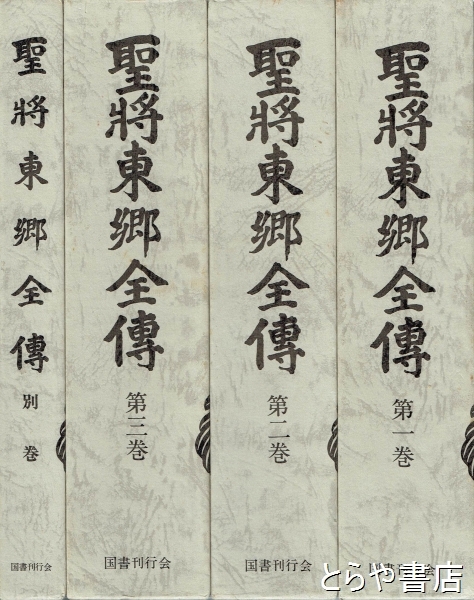 聖將東鄕全傳
第一巻
国書刊行会
聖將東鄕全傳
第二巻
国書刊行会
聖將東鄕全傳
第三巻
国書刊行会
聖將東鄕全傳
別巻
国書刊行会
とらや書店